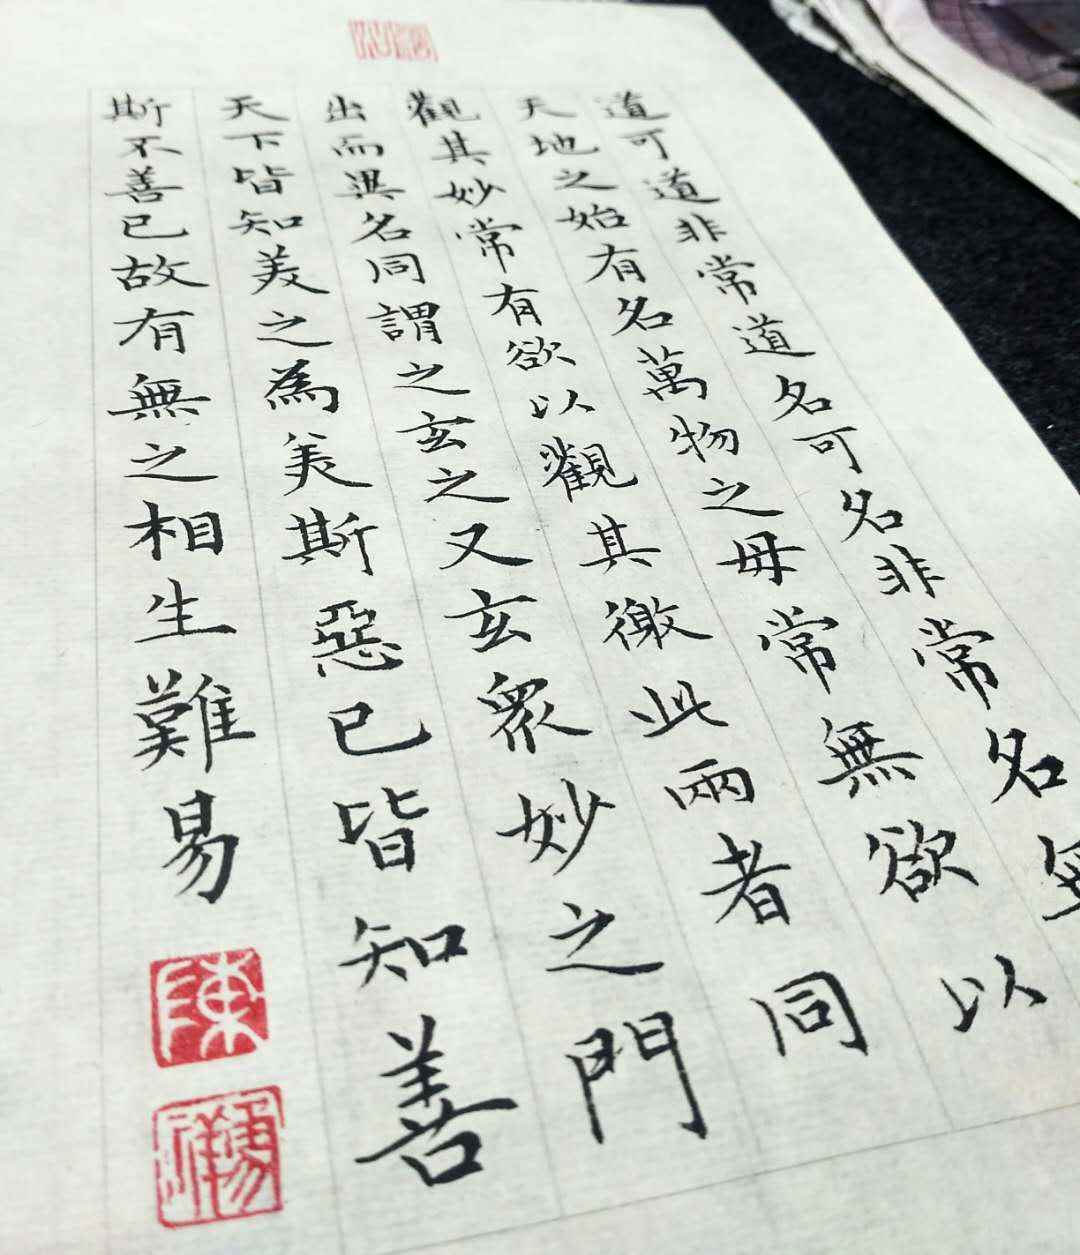 道可道非常道名可名非常名無
天地之始有名萬物之母常無欲以
觀其妙常有欲以觀其徼此兩者同
出而異名同謂之玄之又玄眾妙之門
天下皆知美之為美斯惡已皆知善
斯不善已故有無之相生難易
陳